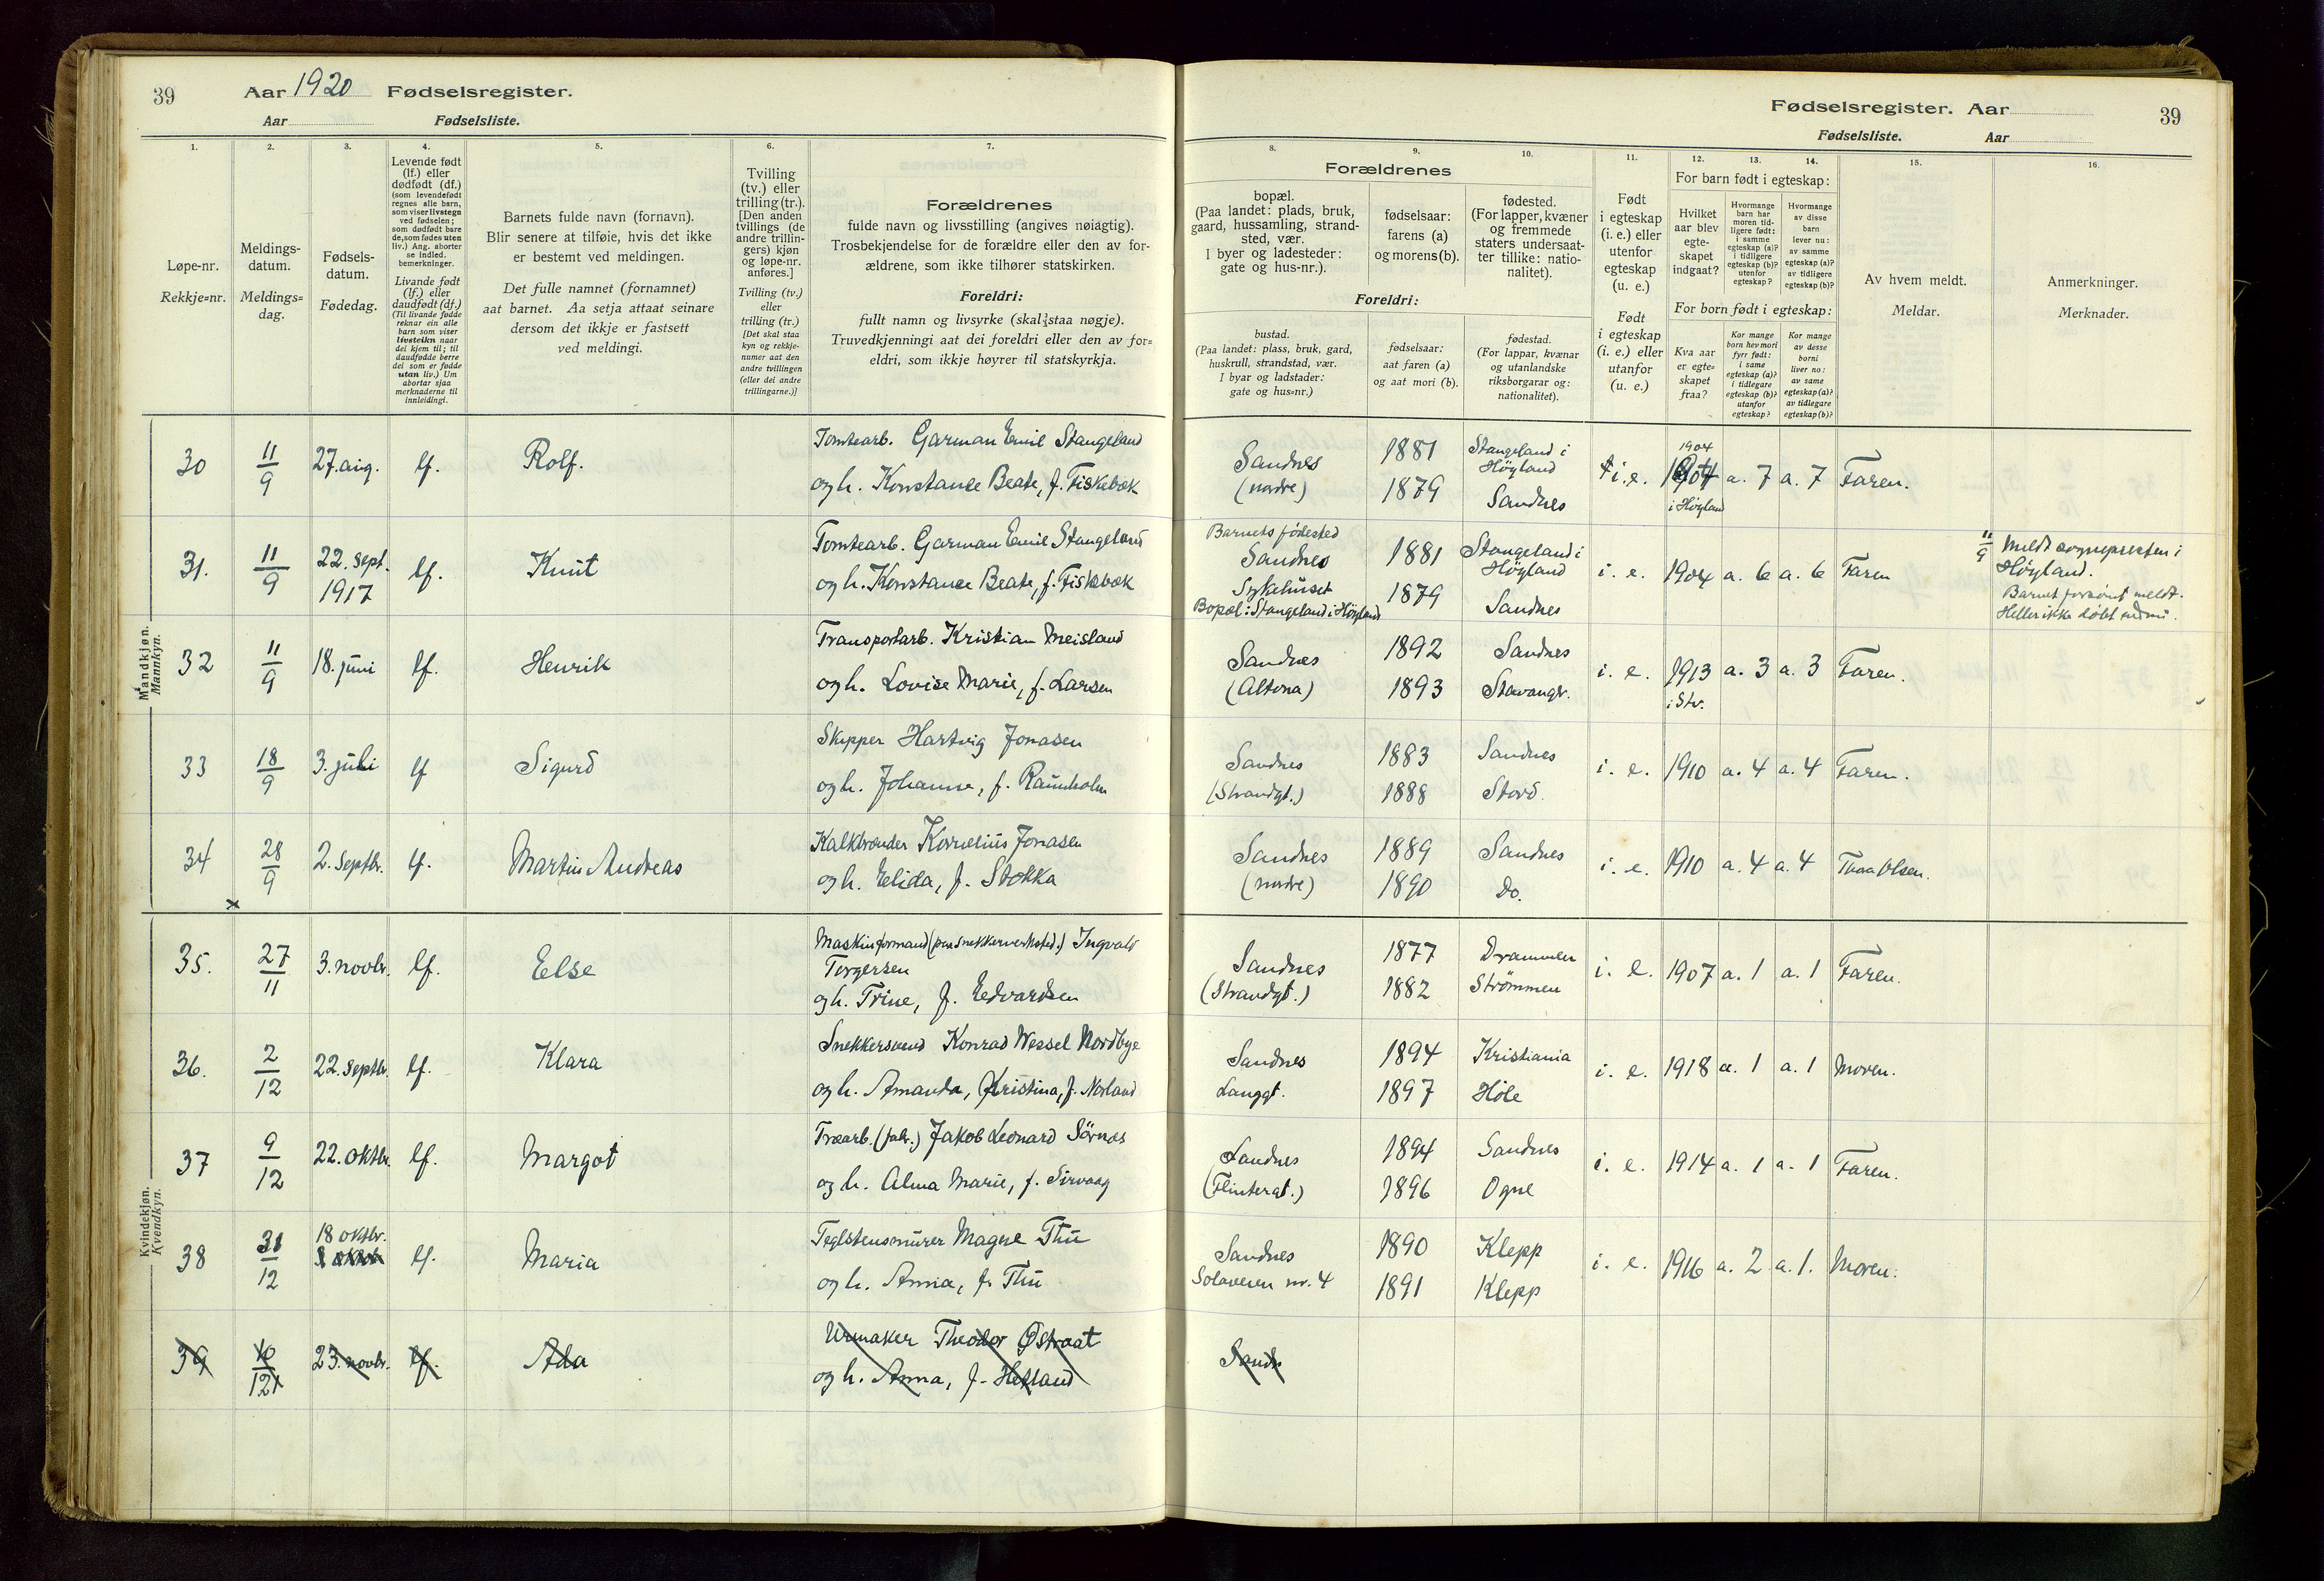 39
Aar 1920 Fødselsregister.
Aar Fødselsliste.
1. 2. 3. 4. 5. 6. 7.
Løpe-nr.
Rekkje=nr.
Meldings-
datum.
Meldings=
dag.
Fødsels-
datum.
Fødedag.
Levende født
(lf.) eller
dødfødt (df.)
(som levendefødt
regnes alle barn,
som viser livstegn
ved fødselen;
som dødfødt bare
de, som fødes uten
liv.) Ang. aborter
se indled.
bemerkninger.
Livande født
(lf.) eller
daudfødt (df.)
(Til livande fødde
reknar ein alle
barn som viser
livsteikn naar
dei kjem til; til
daudfødde berre
dei som er fødde
utan liv.) Um
abortar sjaa
merknaderne til
innleidingi.
Barnets fulde navn (fornavn).
Blir senere at tilføie, hvis det ikke
er bestemt ved meldingen.
Det fulle namnet (fornamnet)
aat barnet. Aa setja attaat seinare
dersom det ikkje er fastsett
ved meldingi.
Tvilling
(tv.) eller
trilling (tr.).
[Den anden
tvillings (de
andre trillin-
gers) kjøn
og løpe-nr.
anføres.]
Tvilling (tv.)
eller
trilling (tr.)
[Det skal staa
kyn og rekkje-
numer aat den
andre tvillingen
(eller dei andre
trillingarne.)]
Forældrenes
fulde navn og livsstilling (angives nøiagtig).
Trosbekjendelse for de forældre eller den av for-
ældrene, som ikke tilhører statskirken.
Foreldri:
fullt namn og livsyrke (skal staa nøgje).
Truvedkjenningi aat dei foreldri eller den av for=
eldri, som ikkje høyrer til statskyrkja.
Mandkjøn.
Mannkyn.
30 11/9 27. aug. lf. Rolf. Tomtearb. Garman Emil Stangeland
og h. Konstance Beate, f. Fiskebæk
31. 11/9 22. sept. 1917 lf. Knut Tomtearb. Garman Emil Stangeland
og h. Konstance Beate, f. Fiskebæk
32 11/9 18. juni lf. Henrik Transportarb. Kristian Meisland
og h. Lovise Marie, f. Larsen
33 18/9 3. juli lf Sigurd Skipper Hartvig Jonasen
og h. Johanne, f. Raunholm
34 28/9 2. Septbr. lf. Martin Andreas Kalkbrænder Kornelius Jonasen
og h. Elida, f. Stokka
x
Kvindekjøn.
Kvendkyn.
35. 27/11 3. novbr. lf. Else Maskinformand (paa snekkerverksted.) Ingvald
Torgersen
og h. Trine, f. Edvardsen
36. 2/12 22. Septbr. lf. Klara Snekkersvend Konrad Wessel Nordbye
og h. Amanda, Kristina, f. Norland
37 9/12 22. oktbr. lf. Margot Træarb. (fabr.) Jakob Leonard Sörnes
og h. Alma Marie, f. Sirvaag
38 31/12 18 oktbr. lf. Maria Teglstensmurer Magne Thu
og h. Anna, f. Thu
39 10/12 23. novbr. lf. Ada Urmaker Theodor Østraat
og h. Anna, f. Hetland
Fødselsregister. Aar
39
Fødselsliste. Aar
8. 9. 10. 11. 12. 13. 14. 15. 16.
Forældrenes
bopæl.
(Paa landet: plads, bruk,
gaard, hussamling, strand-
sted, vær.
I byer og ladesteder:
gate og hus-nr.).
fødselsaar:
farens (a)
og morens (b).
fødested.
(For lapper, kvæner
og fremmede
staters undersaat-
ter tillike: natio-
nalitet).
Foreldri:
bustad.
(Paa landet: plass, bruk, gard,
huskrull, strandstad, vær.
I byar og ladstader:
gate og hus=nr.)
fødselsaar:
aat faren (a)
og aat mori (b).
fødestad.
(For lappar, kvænar
og utanlandske
riksborgarar og:
nationalitet).
Født
i egteskap
(i. e.) eller
utenfor
egteskap
(u. e.)
Født
i egteskap
(i. e.) eller
utanfor
(u. e.)
For barn født i egteskap:
Hvilket
aar blev
egte-
skapet
indgaat?
Hvormange
barn har
moren tid-
ligere født:
i samme
egteskap (a)?
i tidligere
egteskap (b)?
utenfor
egteskap?
Hvormange
av disse
barn
lever nu:
av samme
egteskap (a)?
av tidligere
egteskap (b)?
For born født i egteskap:
Kva aar
er egte=
skapet
fraa?
Kor mange
born hev mori
fyrr født:
i same
egteskap (a)?
i tidlegare
egteskap (b)?
utanfor
egteskap?
Kor mange
av desse
borni
liver no:
av same
egteskap (a)?
av tidlegare
egteskap (b)?
Av hvem meldt.
Meldar.
Anmerkninger.
Merknader.
Sandnes (nordre) 1881 1879 Stangeland i Höyland Sandnes i. e. 1904 1904 i Höyland a. 7 a. 7 Faren.
Barnets fødested
Sandnes Sykehuset 1881 1879 Stangeland i Höyland Sandnes i. e. 1904 a. 6 a. 6 Faren
Bopæl: Stangeland i Höyland
11/9 Meldt sogneprest​en i
Høyland.
Barnet forsömt meldt.
Heller ikke döbt
Sandnes (Altona) 1892 1893 Sandnes Stavanger. i. e. 1913 i Stv. a. 3 a. 3 Faren.
Sandnes (Strandgt.) 1883 1888 Sandnes Stord. i. e. 1910 a. 4 a. 4 Faren.
Sandnes (nordre) 1889 1890 Sandnes Do. i. e. 1910 a. 4 a. 4 Olsen.
Sandnes (Strandgt.) 1877 1882 Drammen Strömmen i. e. 1907 a. 1 a. 1 Faren.
Sandnes Langgt. 1894 1897 Kristiania Höle i. e. 1918 a. 1 a. 1 Moren.
Sandnes (Flintergt.) 1894 1896 Sandnes Ogne i. e. 1914 a. 1 a. 1 Faren.
Sandnes Solaveien nr. 4 1890 1891 Klepp Klepp i. e. 1916 a. 2 a. 1. Moren.
Sandn